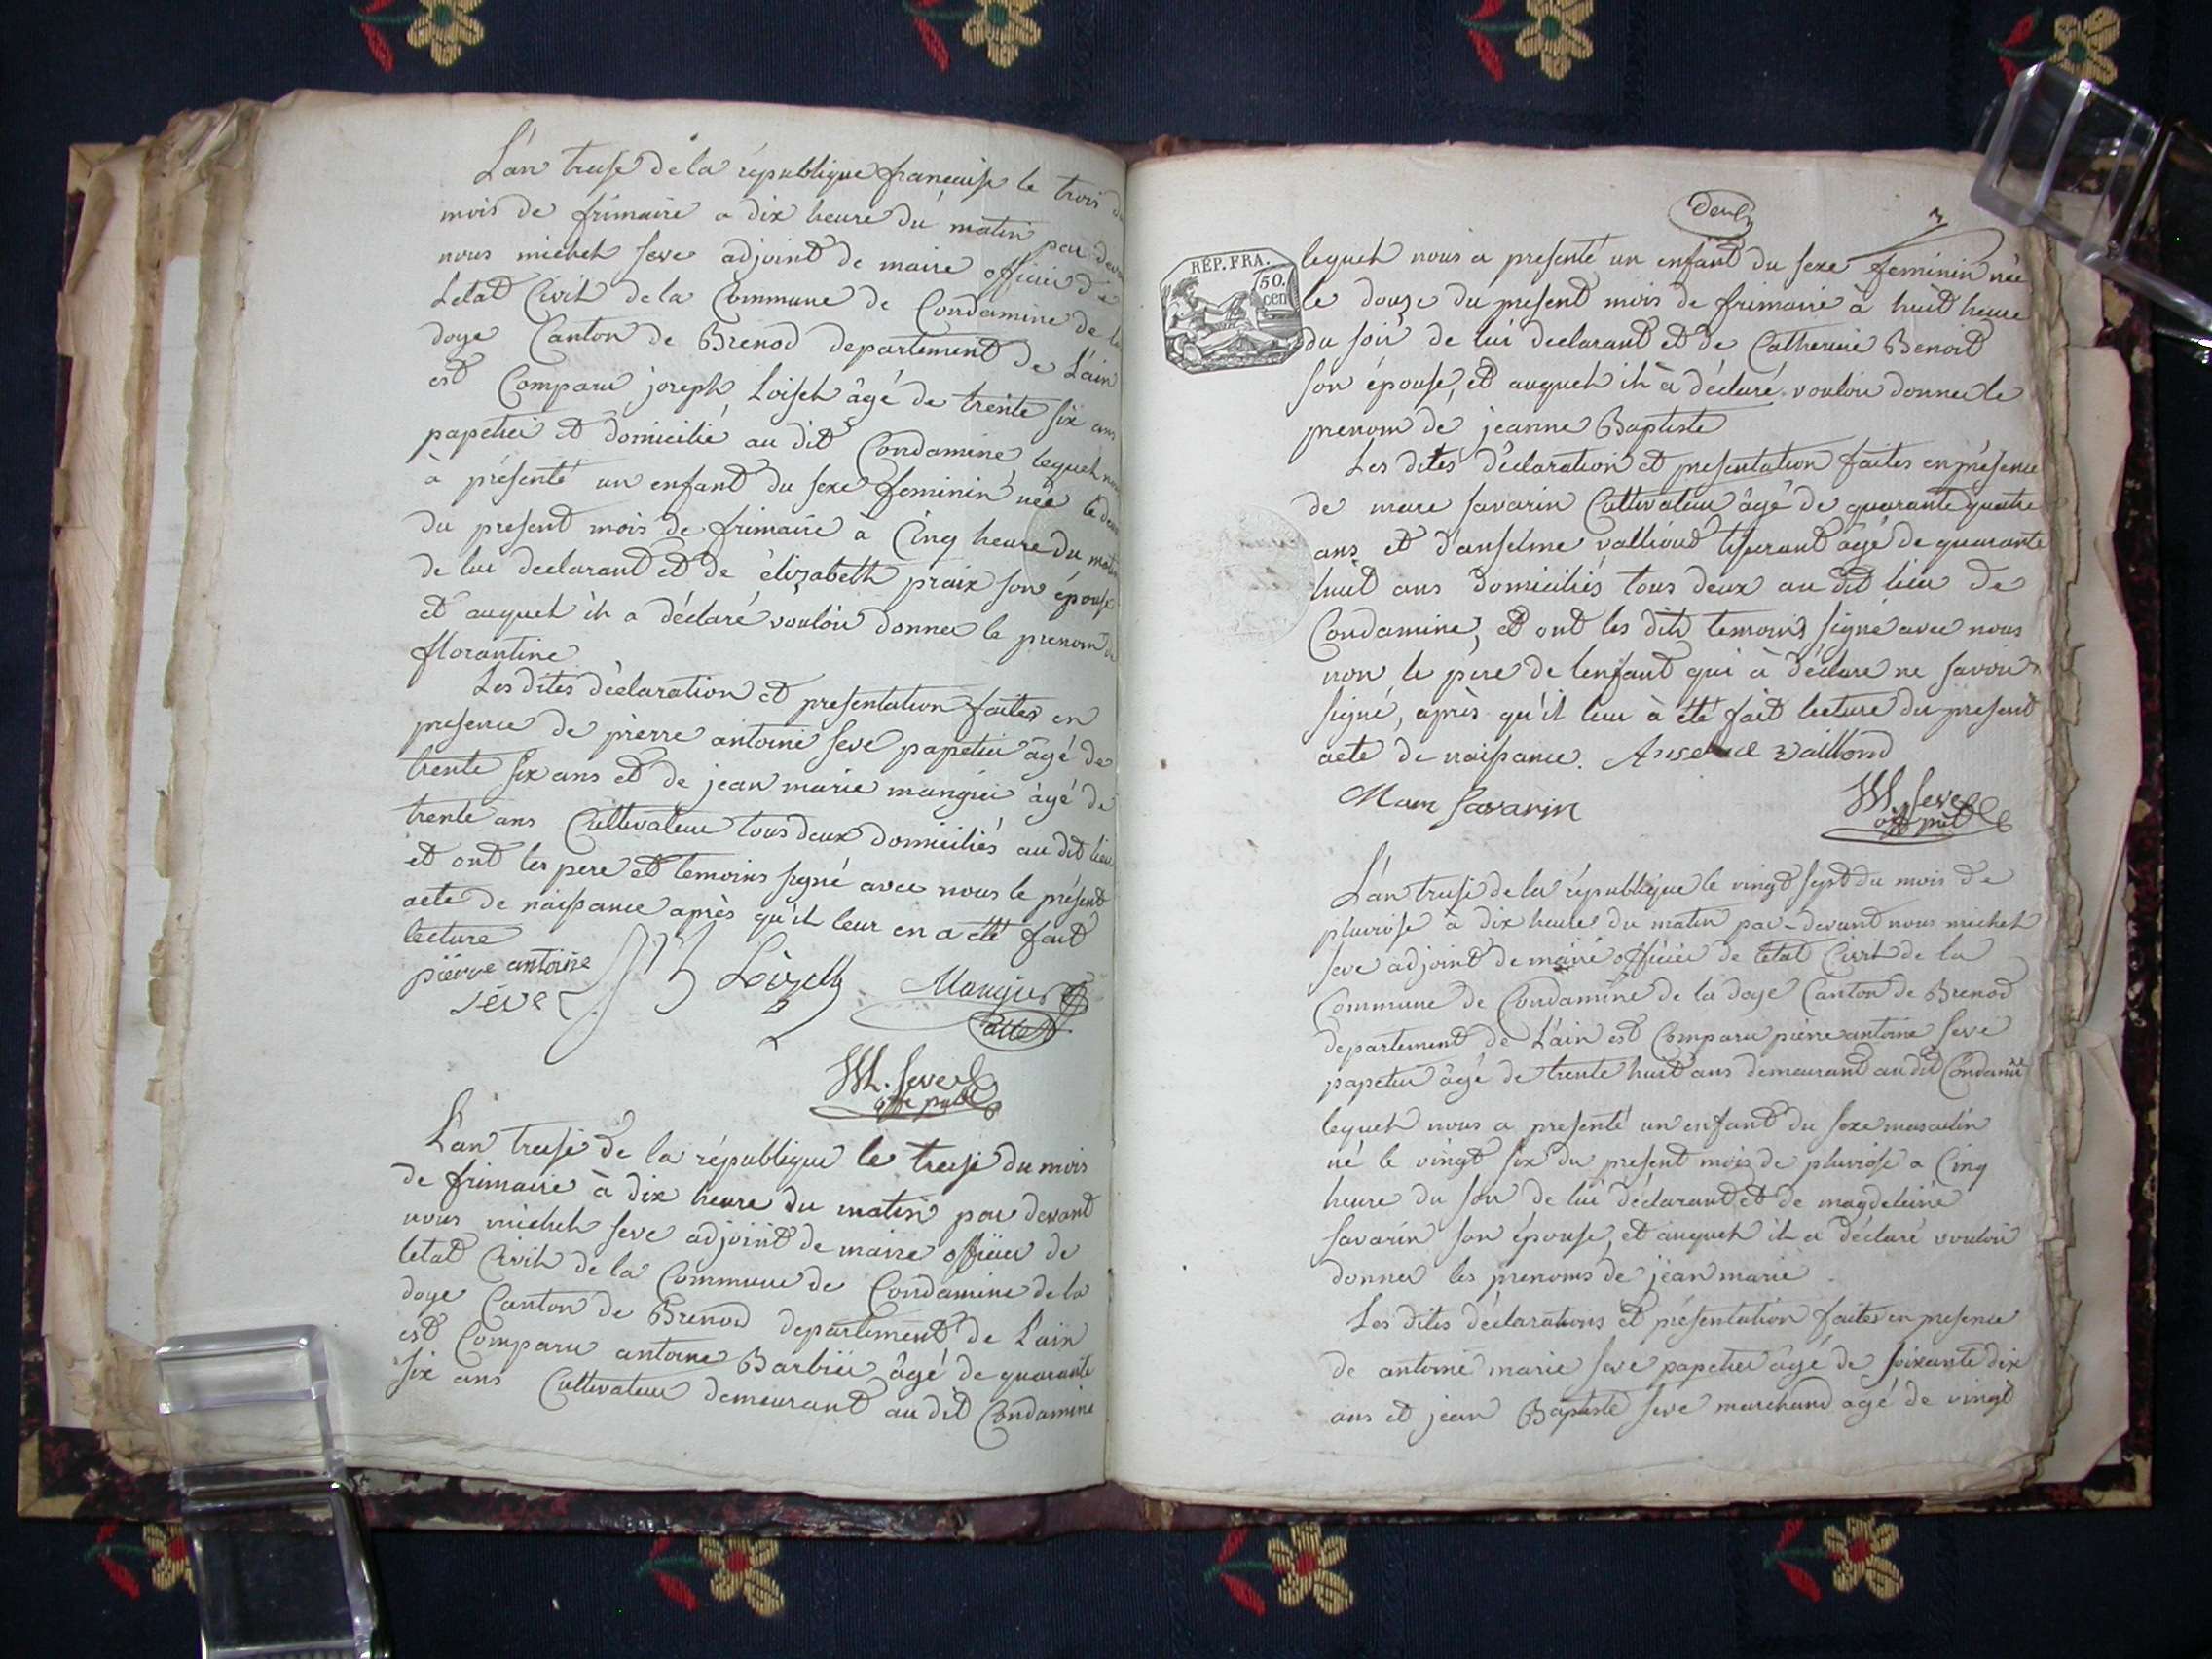 L'an treise de la republique francaise le trois
mois de frimaire a dix heure du matin par
nous michel seve adjoint de maire officier de
Letat Civil de la Commune de Condamine de la
doye Canton de Brenod departement de L'ain
est Comparu joseph Loisel âgé de trente six ans
papetier et domicilié au dit Condamine, lequel nous
à présenté un enfant du sexe feminin née le
du present mois de frimaire à Cinq heure du matin
de lui declarant et de élizabeth praix son épouse
et auquel il a déclaré vouloir donner le prenom de
florantine
Les dites déclaration et presentation faites en
presence de pierre antoine seve papetier âgé de
trente six ans et de jean marie mangier âgé de
trente ans Cultivateur tous deux domiciliés au dit lieu
et ont les pere et temoins signé avec nous le présent
acte de naissance après qu'il leur en a été fait
lecture
pierre antoine
seve
Loizel
Mangier
M. Seve
off publ
L'an treise de la république le treise du mois
de frimaire à dix heure du matin par devant
nous michel seve adjoint de maire officier de
letat Civil de la Commune de Condamine de la
doye Canton de Brenod departement de L'ain
est Comparu antoine Barbier âgé de quarante
six ans Cultivateur demeurant au dit Condamine
deux
3
REP. FRA.
50.
cen
lequel nous a presenté un enfant du sexe feminin née
le douze du present mois de frimaire à huit heure
du soir de lui declarant et de Catherine Benoit
son épouse, et auquel il à déclaré vouloir donner le
prenom de jeanne Baptiste
Les dites déclaration et presentation faites en présence
de marc savarin Cultivateur âgé de quarante quatre
ans et d'anselme vallioud tisserant âgé de quarante
huit ans domiciliés tous deux au dit lieu de
Condamine, et ont les dits temoins signé avec nous
non le pere de lenfant qui à déclare ne savoir
signé, après qu'il leur à été fait lecture du present
acte de naissance. Anselme vailloud
Marc Savarin
M. Seve
off publ
L'an treise de la république le vingt sept du mois de
pluviose à dix heures du matin par-devant nous michel
seve adjoint de maire officier de letat Civil de la
Commune de Condamine de la doye Canton de Brenod
departement de L'ain est Comparu pierre antoine seve
papetier âgé de trente huit ans demeurant au dit Condamine
lequel nous a presenté un enfant du sexe masculin
né le vingt six du present mois de pluviose a Cinq
heure du soir de lui déclarant et de magdeleine
savarin son épouse, et auquel il a déclaré vouloir
donner les prenoms de jean marie
Les dites déclarations et présentation faites en presence
de antoine marie seve papetier âgé de soixante dix
ans et jean Baptiste seve marchand agé de vingt